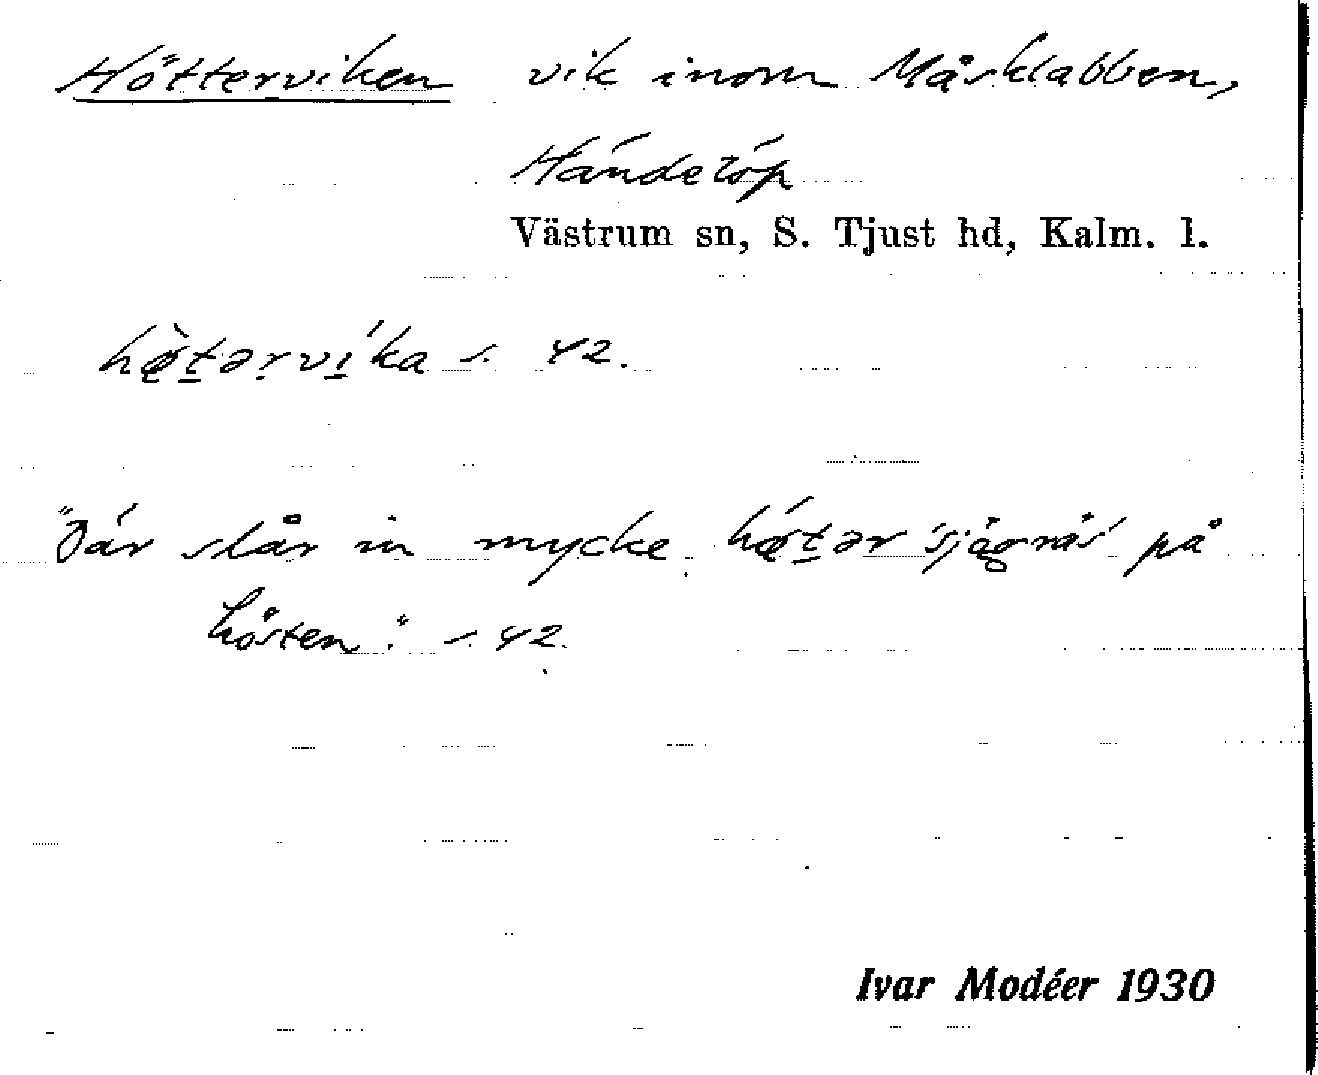 Hötterviken vik inom Måsklabben,
Händelöp
Västrum sn, S. Tjust hd, Kalm. l.
hø̀tərvíka s. 42.
"Där slår in mycke høtər 'sjögräs' på
hösten." s. 42.
Ivar Modéer 1930